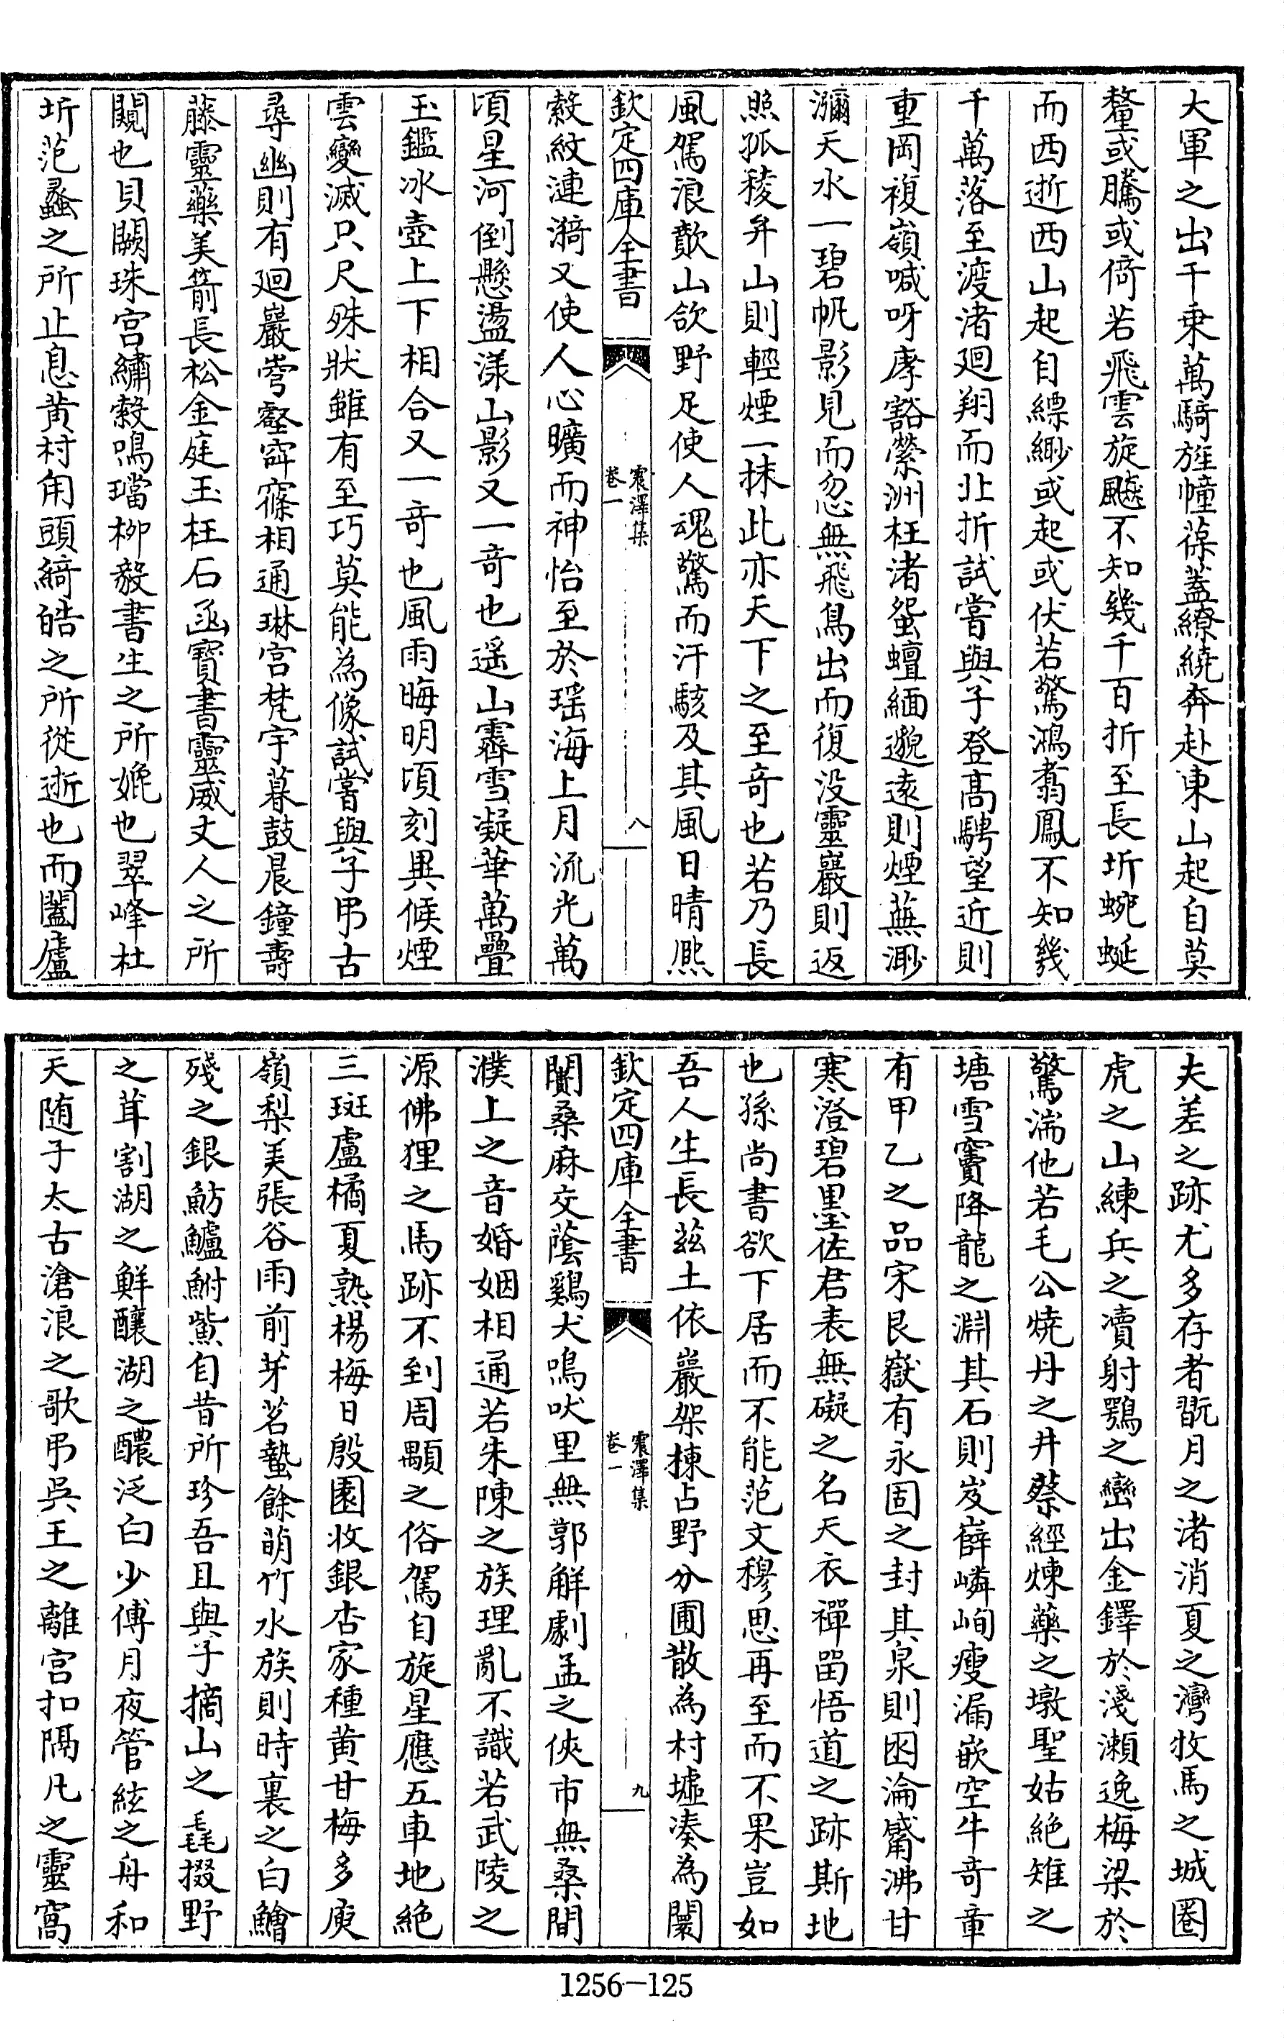 大軍之出千乗萬騎旌幢葆蓋繚繞奔赴東山起自莫
釐或騰或倚若飛雲旋飈不知幾千百折至長圻蜿蜒
而西逝西山起自縹緲或起或伏若驚鴻翥鳳不知幾
千萬落至渡渚廻翔而北折試嘗與子登高騁望近則
重岡複嶺喊呀庨豁縈洲枉渚蜑蟺緬邈逺則煙蕪渺
瀰天水一碧帆影見而忽無飛鳥出而復没靈巖則返
照孤稜弁山則輕煙一抹此亦天下之至竒也若乃長
風駕浪歕山欱野足使人魂驚而汗駭及其風日晴熈
欽定四庫全書
震澤集
卷一
八
縠紋漣漪又使人心曠而神怡至於瑶海上月流光萬
頃星河倒懸盪漾山影又一竒也遥山霽雪凝華萬疊
玉鑑冰壺上下相合又一竒也風雨晦明頃刻異候煙
雲變滅只尺殊狀雖有至巧莫能為像試嘗與子弔古
尋幽則有廻巖嵜壑窙寱相通琳宫梵宇暮鼓晨鐘壽
藤靈藥美箭長松金庭玉柱石函寳書靈威丈人之所
闚也貝闕珠宫繡縠鳴璫栁毅書生之所娩也翠峰杜
圻范蠡之所止息黄村甪頭綺皓之所從逝也而闔廬
夫差之跡尤多存者翫月之渚消夏之灣牧馬之城圈
虎之山練兵之瀆射鶚之巒出金鐸於淺瀨逸梅梁於
驚湍他若毛公燒丹之井蔡經煉藥之墩聖姑絶雉之
塘雪竇降龍之淵其石則岌嶭嶙峋瘦漏嵌空牛竒章
有甲乙之品宋艮嶽有永固之封其泉則困淪觱沸甘
寒澄碧墨佐君表無礙之名天衣禪畱悟道之跡斯地
也孫尚書欲下居而不能范文穆思再至而不果豈如
吾人生長兹土依巖架棟占野分圃散為村墟湊為闤
欽定四庫全書
震澤集
卷一
九
闠桑麻交蔭鷄犬鳴吠里無郭解劇孟之俠市無桑間
濮上之音婚姻相通若朱陳之族理亂不識若武陵之
源佛狸之馬跡不到周顒之俗駕自旋星應五車地絶
三斑盧橘夏熟楊梅日殷園收銀杏家種黄甘梅多庾
嶺梨美張谷雨前芽茗蟄餘萌竹水族則時裏之白鱠
殘之銀魴鱸鮒鮆自昔所珍吾且與子摘山之毳掇野
之茸割湖之鮮釀湖之醲泛白少傅月夜管絃之舟和
天随子太古滄浪之歌弔吳王之離宫扣隔凡之靈窩
1256-125